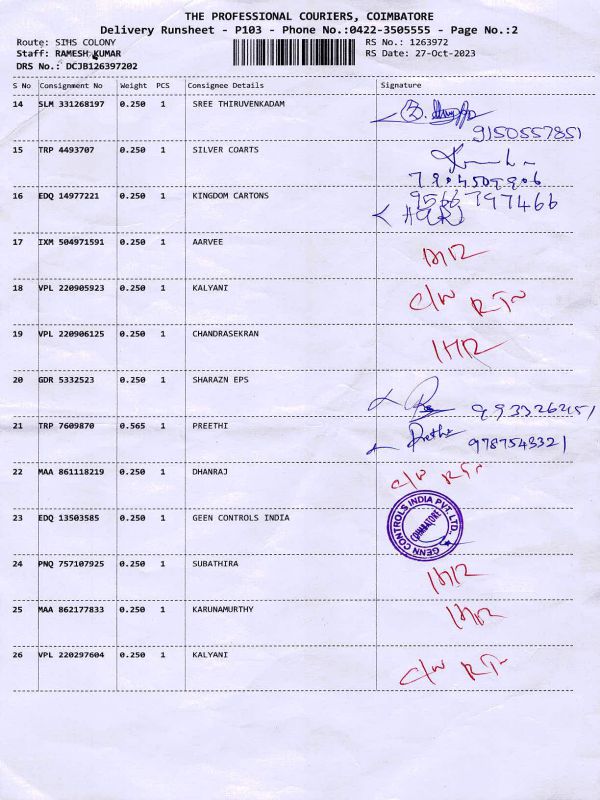 THE PROFESSIONAL COURIERS, COIMBATORE
Delivery Runsheet - P103 - Phone No.:0422-3505555 - Page No.:2
Route: SIHS COLONY RS No.: 1263972
Staff: RAMESH KUMAR RS Date: 27-Oct-2023
DRS No.: DCJB126397202
S No Consignment No Weight PCS Consignee Details Signature
14 SLM 331268197 0.250 1 SREE THIRUVENKADAM
9150557851
15 TRP 4493707 0.250 1 SILVER COARTS
7904509906
16 EDQ 14977221 0.250 1 KINGDOM CARTONS 9566797466
17 IXM 504971591 0.250 1 AARVEE
18 VPL 220905923 0.250 1 KALYANI C/W RTN
19 VPL 220906125 0.250 1 CHANDRASEKRAN
20 GDR 5332523 0.250 1 SHARAZN EPS
21 TRP 7609870 0.565 1 PREETHI Preethi 9787543321
22 MAA 861118219 0.250 1 DHANRAJ C/W RTN
23 EDQ 13503585 0.250 1 GEEN CONTROLS INDIA GENN CONTROLS INDIA PVT. LTD. COIMBATORE
24 PNQ 757107925 0.250 1 SUBATHIRA
25 MAA 862177833 0.250 1 KARUNAMURTHY
26 VPL 220297604 0.250 1 KALYANI C/W RTN